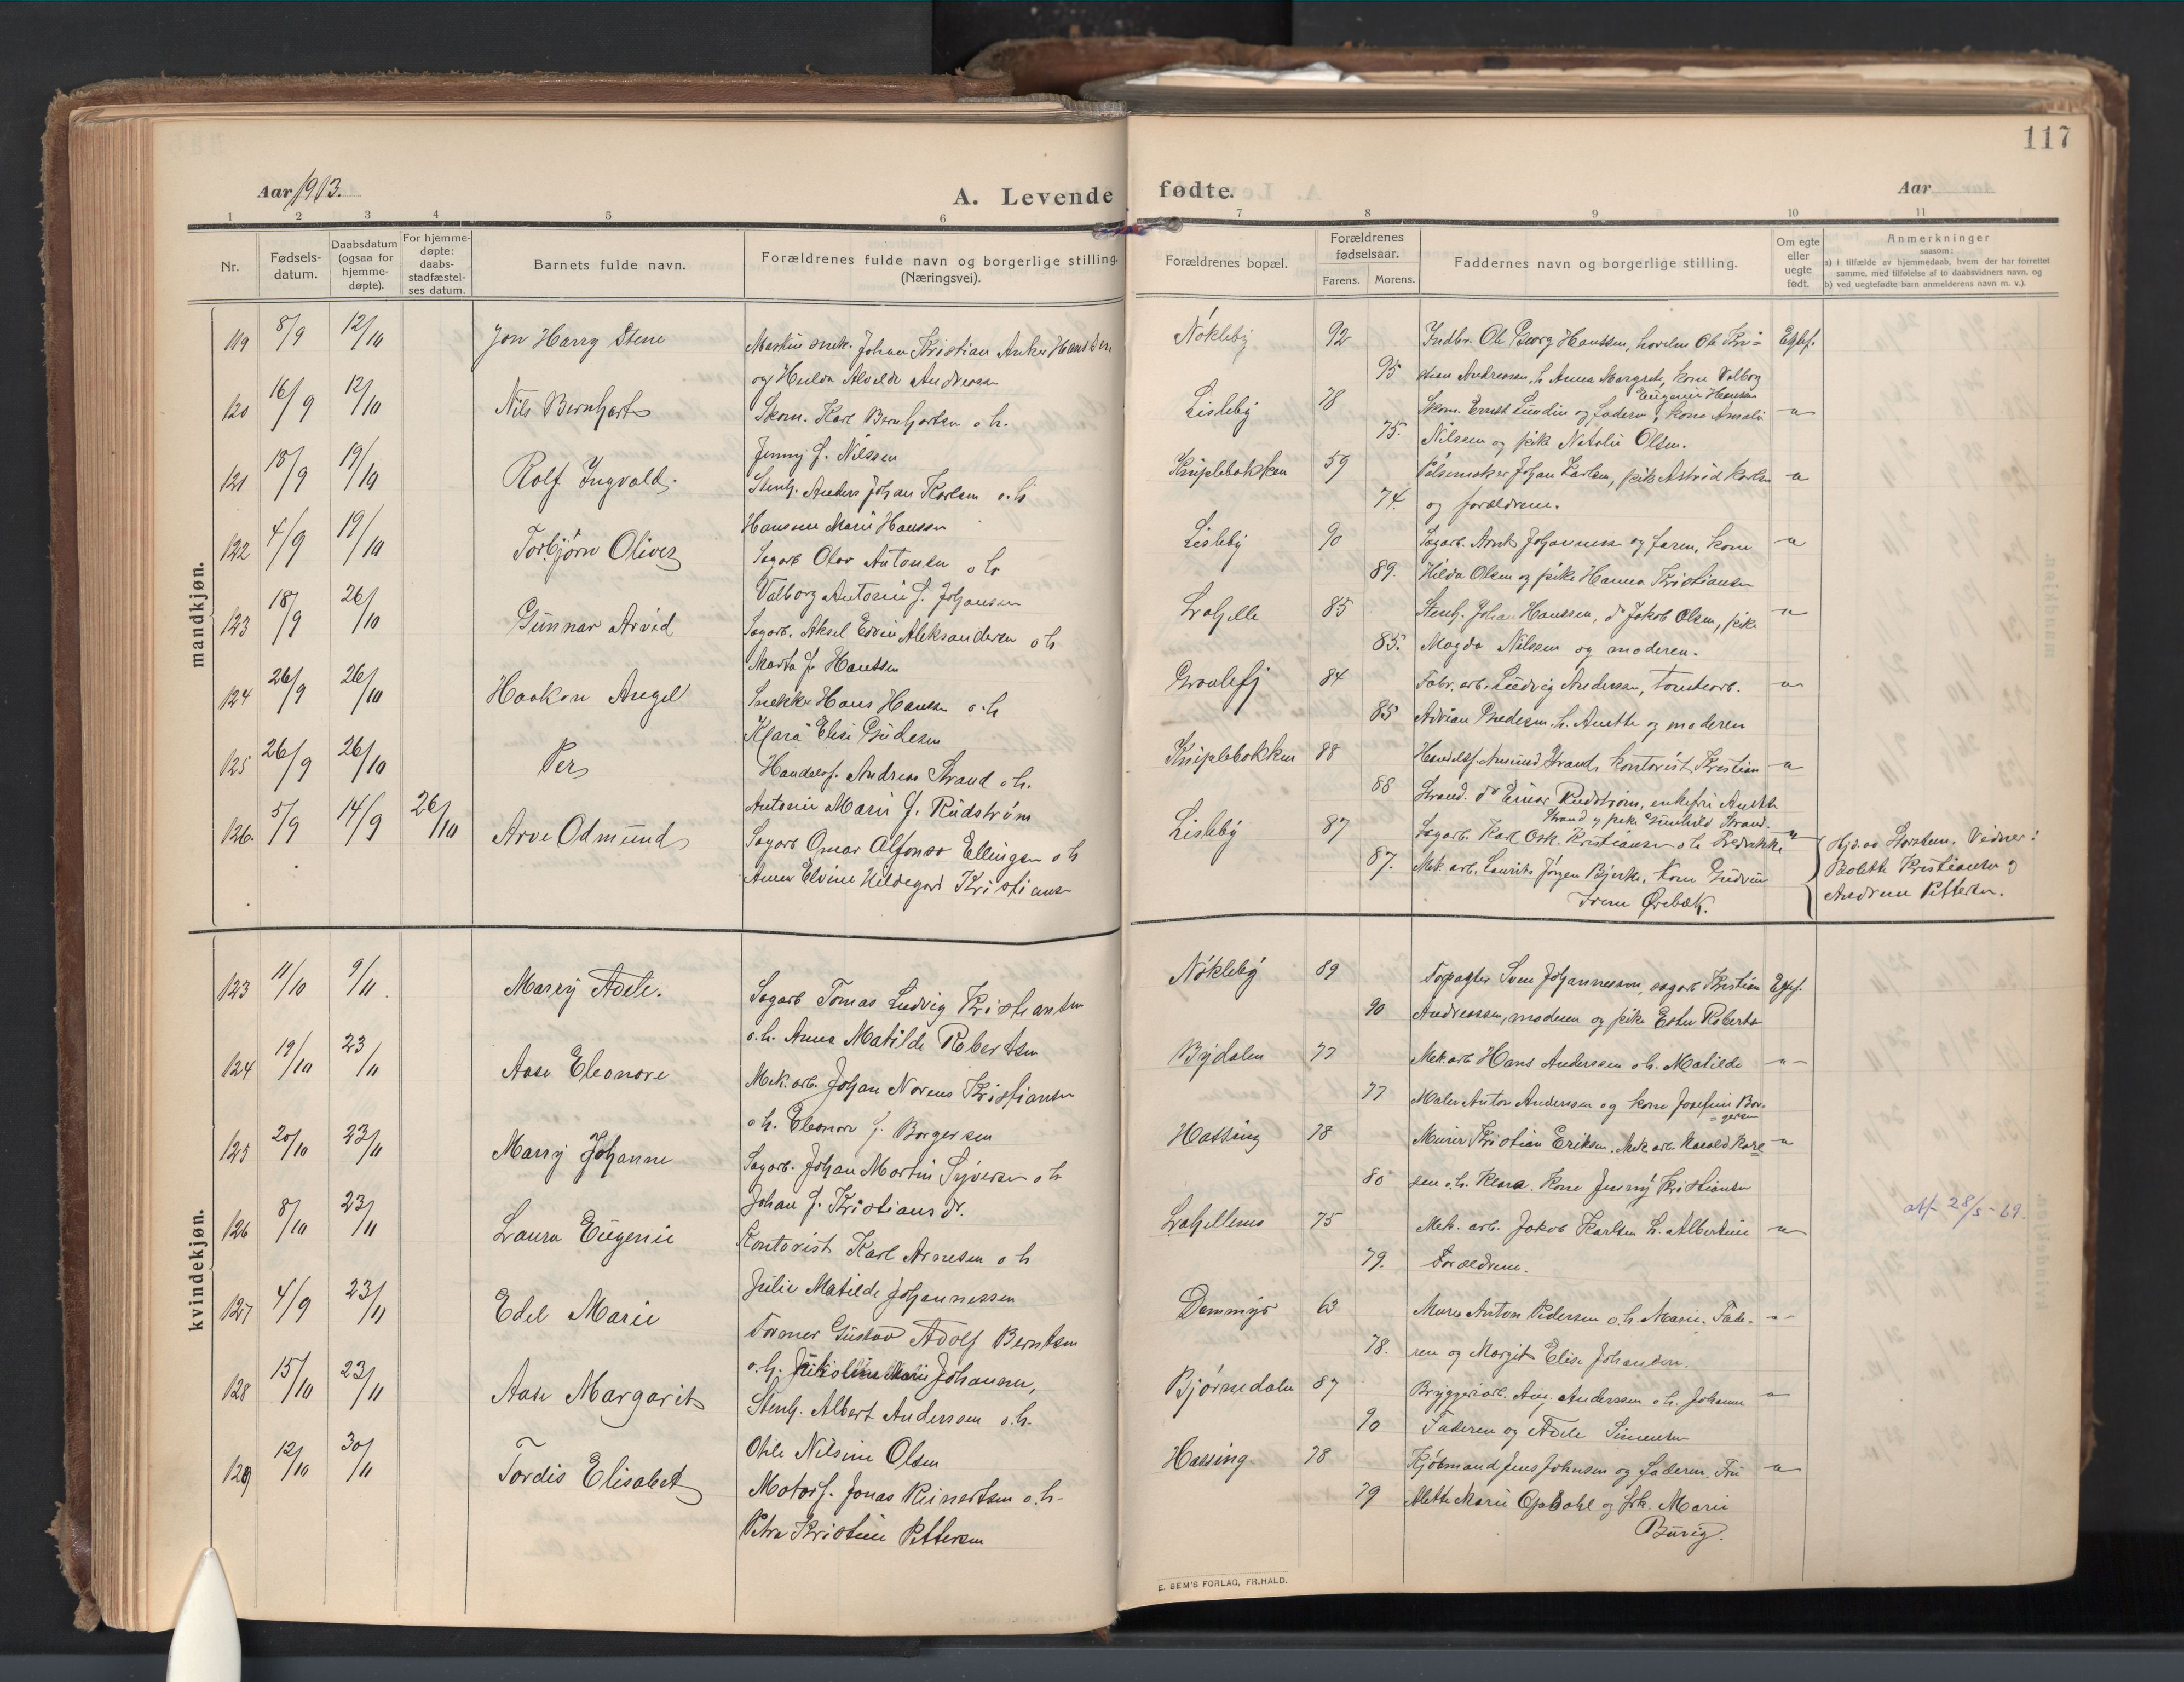 117
Aar 1913.
A. Levende
fødte.
Aar
1 2 3 4 5 6
7 8 9 10 11
Nr.
Fødsels-
datum.
Daabsdatum
(ogsaa for
hjemme-
døpte).
For hjemme-
døpte:
daabs-
stadfæstel-
ses datum.
Barnets fulde navn.
Forældrenes fulde navn og borgerlige stilling.
(Næringsvei).
Forældrenes bopæl.
Forældrenes
fødselsaar.
Farens. Morens.
Faddernes navn og borgerlige stilling.
Om egte
eller
uegte
født.
Anmerkninger
saasom:
a) i tilfælde av hjemmedaab, hvem der har forrettet
samme, med tilføielse af to daabsvidners navn, og
b) ved uegtefødte barn anmelderens navn m. v.).
mandkjøn.
119 8/9 12/10 Jon Harry Stene
Maskinsnek. Johan Kristian Anker Hansten
og Hulda Alvilde Andreassen
Nökleby 92 95
Indbr. Ole Georg Hanssen, hovslen Ole Kri-
stian Andreassen, h. Anna Margrete, kone Valborg
Eugenie Hansen
Egtef.
120 16/9 12/10 Nils Bernhart
Skom. Karl Bernhartsen o. h.
Jenny f. Nilssen
Lisleby 78 75.
Skom. Ernst Lundin og faderen, kone Amalie
Nilssen og pike Natalie Olsen.
121 18/9 19/10 Rolf Ingvald.
Stenh. Anders Johan Karlsen o. h
Hansine Marie Hanssen
Kniplebakken 59 74.
Pölsemaker Johan Karlsen, pike Astrid Karlsen
og forældrene.
122 4/9 19/10 Torbjørn Oliver
Sagarb Olav Antonsen o h
Valborg Antonie f. Johansen
Lisleby 90 89.
Sagarb. Arnt Johannessen og faren, kone
Hilda Olsen og pike Hanna Kristiansen
123 18/9 26/10 Gunnar Arvid
Sagarb. Aksel Edvin Aleksandersen o h
Marta f. Hanssen
Lrahelle 85 85.
Stenh. Johan Hanssen, do Jakob Olsen, pike
Magda Nilssen og moderen.
124 26/9 26/10 Haakon Angel
Snekker Hans Hansen o. h
Klara Elise Gudesen
84 85
Fabr. arb. Ludvig Andersen, tomtearb.
Adrian Gudesen. h. Anette og moderen
125 26/9 26/10 Per
Handelsf. Andreas Strand o. h.
Antonie Marie f. Rudstrøm
Kniplebakken 88 88
Handelsf. Amund Strand, kontorist Kristian
Strand. do Einar Rudstrøm, enkefru Anette
Strand og pike Gunhild Strand.
126. 5/9 14/9 26/10 Arve Odmund
Sagarb Omar Alfonso Ellingsen o h
Anna Elvine Hildegard Kristiansen
Lisleby 87 87.
Sagarb. Karl Osk. Kristiansen o. h. Fredrikke
Mek. arb. Laurits Jörgen Bjerke. Kone Gudrun
Irene Ørebæk.
Hj.d. av Vidner:
Bolette Kristiansen og
Andrine Pettersen.
kvindekjøn.
123 11/10 9/11. Marry Adele.
Sagarb Tomas Ludvig Kristiansen
o. h. Anna Matilde Robertsen
Nökleby 89 90
Forpagter Sven Johannessen, sagarb Kristian
Andreassen, moderen og pike Ester Roberts
Egtef.
124 19/10 23/11 Aase Eleonore
Mek. arb. Johan Norens Kristiansen
o h. Eleonore f. Borgersen
Bydalen 77 77
Mek. arb Hans Anderssen o h. Matilde
Maler Anton Anderssen og kone Josefine Bor-
gersen
125 20/10 23/11 Marry Johanne
Sagarb. Johan Martin Syversen o h
Johan f. Kristiansdr.
Hassing 78 80
Murer Kristian Eriksen. Mek arb. Harald Karl-
sen o. h. Klara. Kone Jenny Kristiansen
126 8/10 23/11 Laura Eugenie
Kontorist Karl Arnesen o h
Julie Matilde Johannessen
Lrahellemo 75 79.
Mek. arb. Jakob Karlsen h. Albertine
Forældrene.
att 28/5-69.
127 4/9 23/11 Edel Marie
Former Gustav Adolf Berntsen
o. h. Marie Johansen,
Dammyr 63 78.
Murer Anton Pedersen o. h. Marie. Fade-
ren og Margit Elise Johansen.
128 15/10 23/11 Aase Margarit
Stenh. Albert Anderssen o. h.
Otile Nilsine Olsen
Bjørnedalen 87 90
Bryggeriarb. Aug. Anderssen o h. Johanne
Faderen og Adele Simensen
129 12/10 30/11 Tordis Elisabet
Motorf. Jonas Reinertsen o. h.
Petra Kristine Pettersen
Hassing 78 79
Kjöbmand Jens Johnsen og faderen. Fru
Alette Marie Opdahl og frk. Marie
Burig.
E. SEM'S FORLAG, FR.HALD.